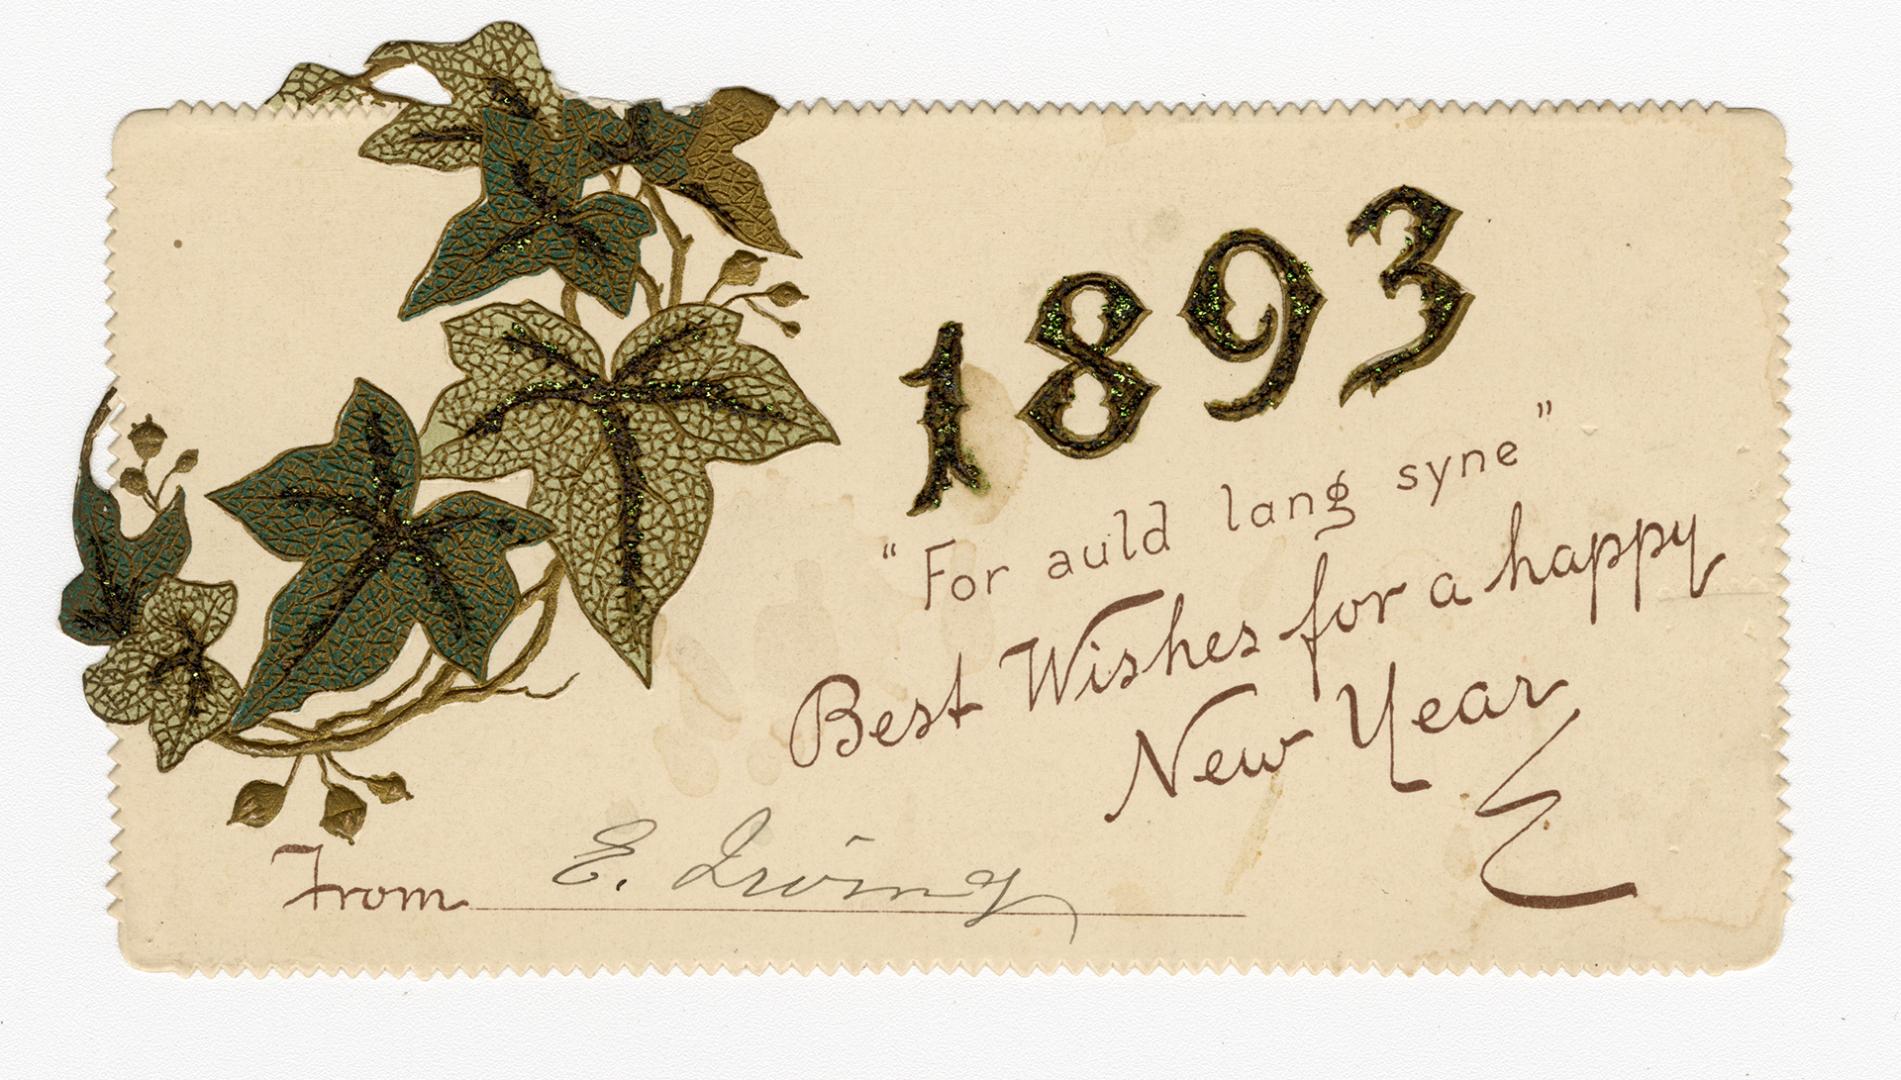 1893
“For auld lang syne”
Best Wishes for a happy
New Year
From E. Irving